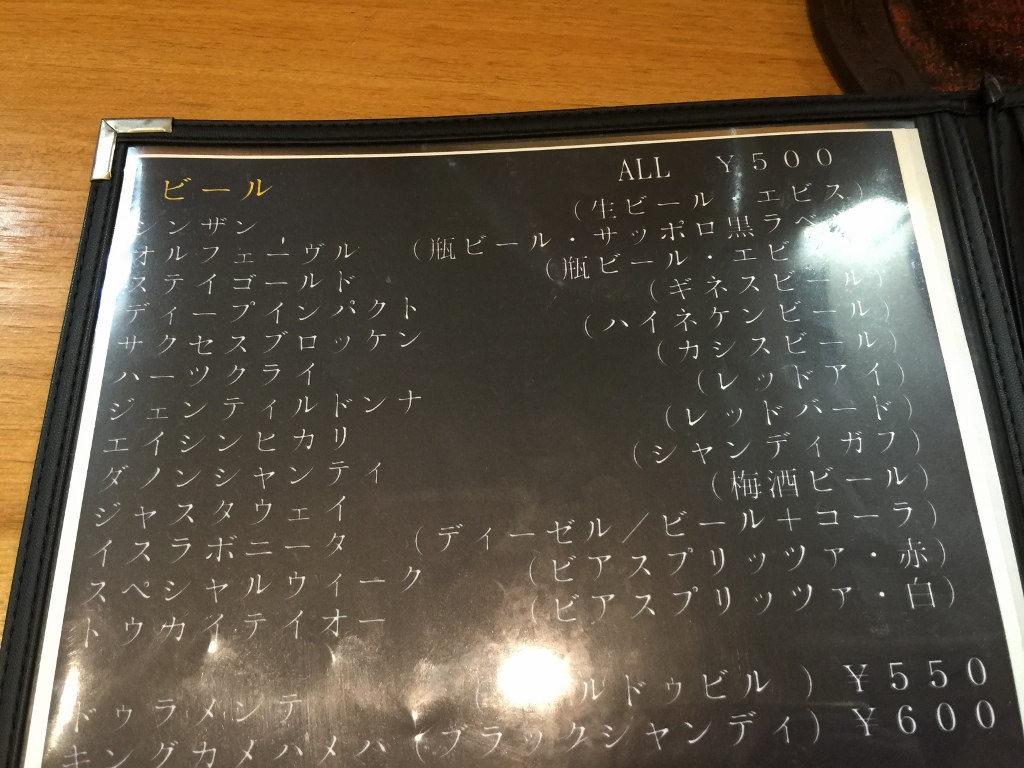 ビール ALL ￥５００
シンザン （生ビール エビス）
オルフェーヴル （瓶ビール・サッポロ黒ラベ
ステイゴールド （瓶ビール・エビ
ディープインパクト （ギネスビール）
サクセスブロッケン （ハイネケンビール）
ハーツクライ （カシスビール）
ジェンティルドンナ （レッドアイ）
エイシンヒカリ （レッドバード）
ダノンシャンティ （シャンディガフ）
ジャスタウェイ （梅酒ビール）
イスラボニータ （ディーゼル／ビール＋コーラ）
スペシャルウィーク （ビアスプリッツァ・赤）
トウカイテイオー （ビアスプリッツァ・白）
ドゥラメンテ （ ルドゥビル ） ￥５５０
キングカメハメハ（ブラックシャンディ） ￥６００